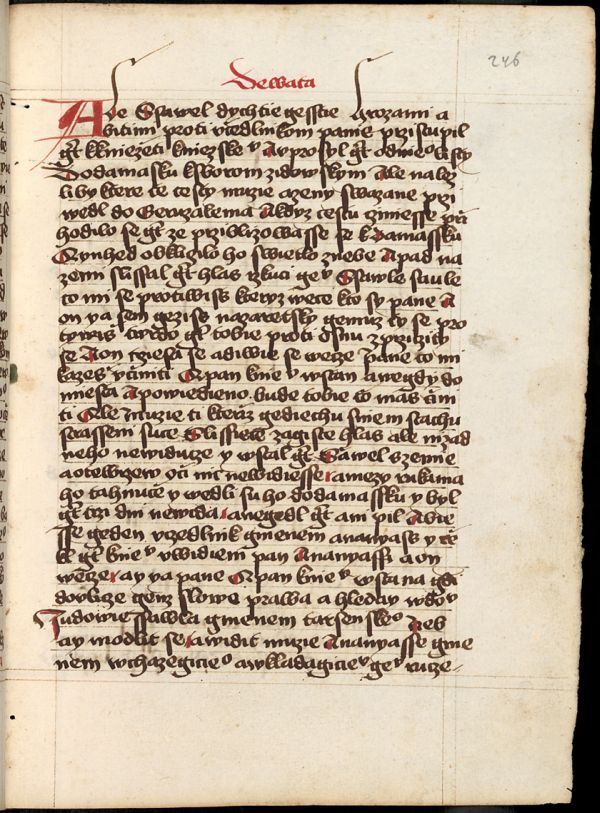 Dewata
246
Ale Ssawel dychtie gesstie hrozami a
bitimi proti vcedlnikom panie przistupil
gt kkniezeti kniezskev A prosyl gt odnieo listy
Dodamasku kssorom zidowskym Ale nalez
liby ktere te cesty muzie azeny swazane przi
wedl do Geruzalema Akdyz cestu cziniesse pri
hodilo se gt ze przibliziowasse se k Damassku
A ynhed obklizilo ho swietlo znebe A pad na
zemi slissal gt hlas rzkuci gev Ssawle saule
co mi se protiwiss kteryz wece kto sy pane A
on ya sem gezis nazaretsky gemuz ty se pro
tywiss twrdo gt tobie proti ostnu zprziczity
se A on trzesa se adiwie se wecze pane co mi
kazess vciniti A pan kniev wstan awegdy do
miesta A powiedieno bude tobie co mas cini
ti Ale muzie ti kteraz gediechu sniem stachu
strassem suce Slissiece zagiste hlas ale nizad
neho newiduce y wstal gt Sawel szemie
aotewrzew oci nic newidiesse amezy rukama
ho tahnuce y wedli su ho dodamassku y byl
gt trzi dni newida anegedl gt ani pil A bie
sse geden vczedlnik gmenem ananyass y rce
kl gt kniev vwidieni pan Ananyassi a on
wecze ay ya pane A pan kniev wsta na gdi
dovlicze genz slowe prawa a hleday wdov
Judowie sawla gmenem tarsenskeo Neb
ay modlit se awidit muzie Ananyasse gme
nem wchazegicieo awkladagicieo gev rucze